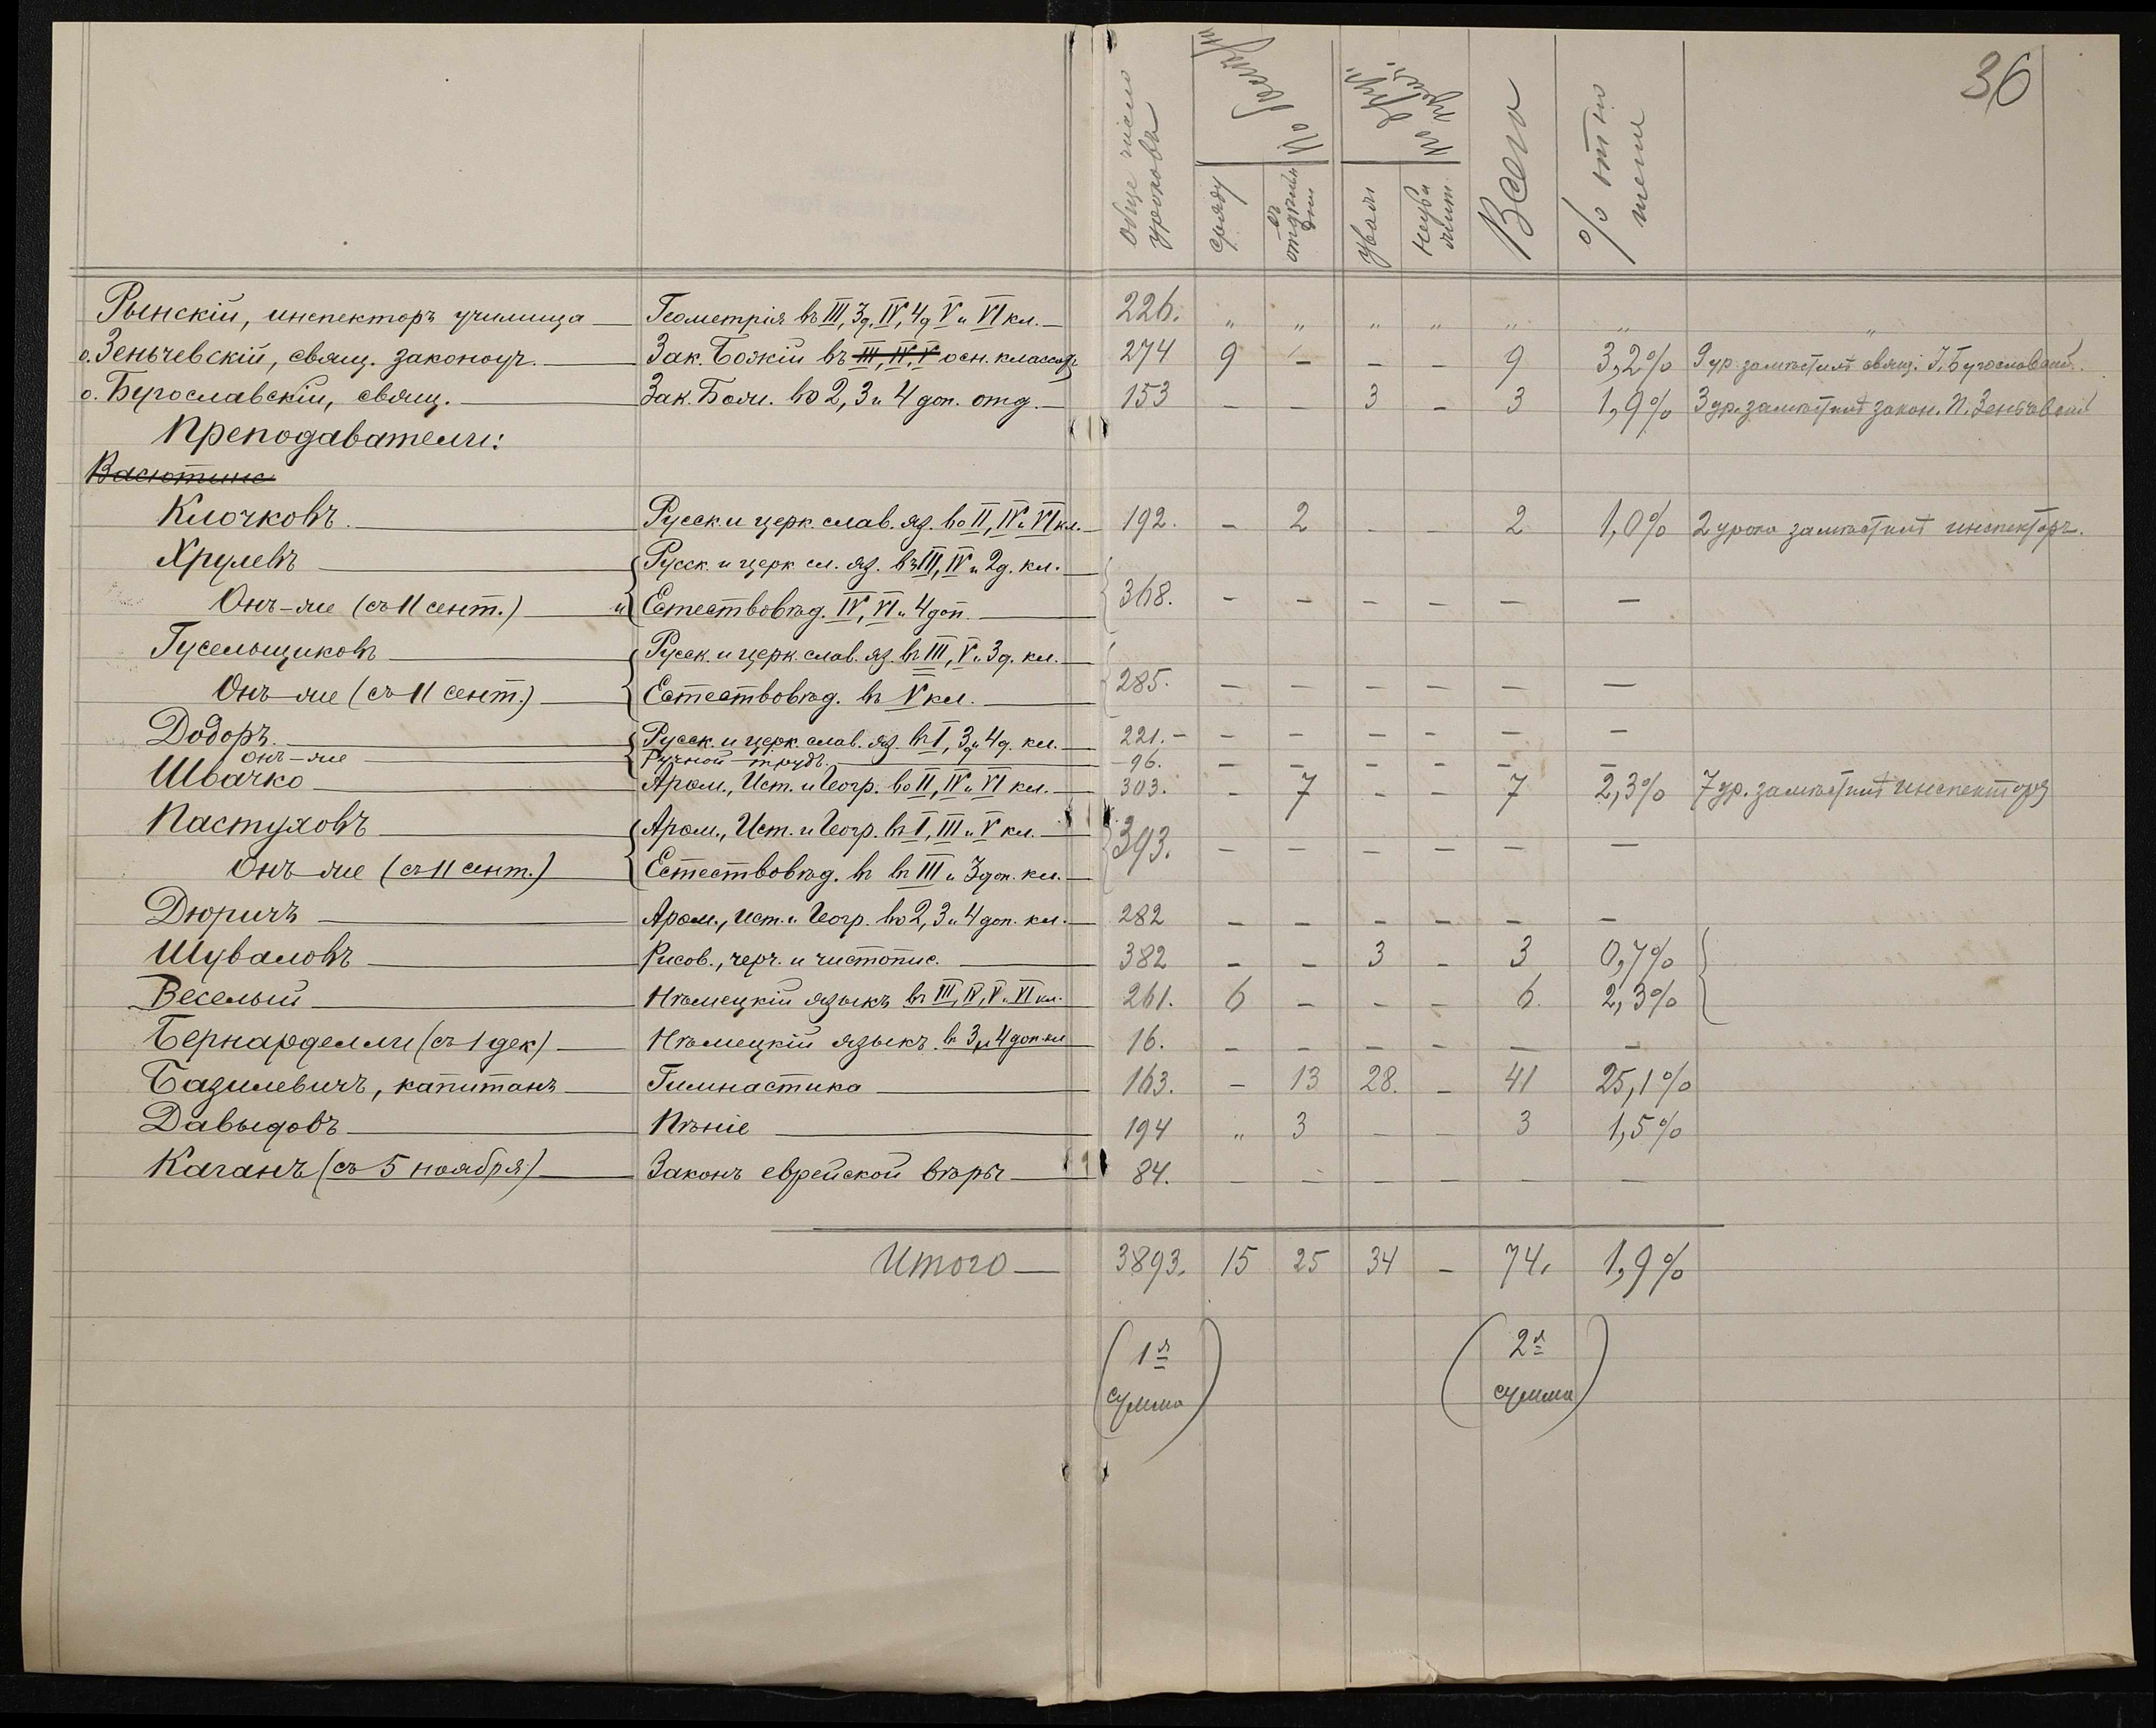 36
Обще число уроковъ
По болезни
сряду
въ отдѣльн. дни
По друг. прич.
уваж.
неува жит.
Всего
% отно шенія
Рынскій, инспекторъ училища — Геометрія въ III, 3д, IV, 4д, V и VI кл. — 226. " " " " " " "
о. Зеньчевскій, свящ. законоуч. — Зак. Божій въ III, IV, V осн. классахъ 274 9 – – – 9 3,2% 9 ур. замѣстилъ свящ. І. Бугославскій.
о. Бугославскій, свящ. — Зак. Бож. во 2, 3 и 4 доп. отд. — 153 – – 3 – 3 1,9% 3 ур. замѣстилъ закон. П. Зеньчевскій
Преподаватели:
Васютинс
Клочковъ. — Русск. и церк. слав. яз. во II, IV и VI кл. — 192. – 2 – – 2 1,0% 2 урока замѣстилъ инспекторъ.
Хрулевъ — Русск. и церк. сл. яз. въ III, IV и 2д. кл. —
Онъ-же (съ 11 сент.) — и Естествовѣд. IV, VI и 4 доп. — 368. – – – – – –
Гусельщиковъ — Русск. и церк. слав. яз. въ III, V и 3д. кл. —
Онъ-же (съ 11 сент.) — Естествовѣд. въ V кл. — 285. – – – – – –
Додоръ. — Русск. и церк. слав. яз. въ I, 3 и 4д. кл. — 221. – – – – – – –
Онъ-же — Ручной трудъ. — 96. – – – – – –
Швачко — Аром., Ист. и Геогр. во II, IV и VI кл. — 303. – 7 – – 7 2,3% 7 ур. замѣстилъ инспекторъ
Пастуховъ — Аром., Ист. и Геогр. въ I, III и V кл. —
Онъ же (съ 11 сент.) — Естествовѣд. въ въ III и 3 доп. кл. — 393. – – – – – –
Дюричъ — Аром., Ист. и Геогр. во 2, 3 и 4 доп. кл. — 282 – – – – – –
Шуваловъ — Рисов., черч. и чистопис. — 382 – – 3 – 3 0,7%
Веселый — Нѣмецкій языкъ въ III, IV, V и VI кл. 261. 6 – – – 6. 2,3%
Бернарделли (съ 1 дек) — Нѣмецкій языкъ. въ 3 и 4 доп. кл 16. – – – – – –
Базилевичъ, капитанъ — Гимнастика — 163. – 13 28. – 41 25,1%
Давыдовъ — Пѣніе — 194 " 3 – – 3 1,5%
Каганъ (съ 5 ноября) — Законъ еврейской вѣры — 84. – – – – – –
Итого — 3893. 15 25 34 – 74. 1,9%
(1я сумма) (2я сумма)